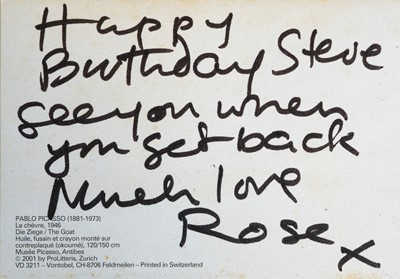 Happy
Birthday Steve
see you when
you get back
Much love
Rose x
PABLO PICASSO (1881-1973)
La chèvre, 1946
Die Ziege / The Goat
Huile, fusain et crayon monté sur
contreplaqué (okoumé), 120/150 cm
Musée Picasso, Antibes
© 2001 by ProLitteris, Zurich
VD 3211 – Vontobel, CH-8706 Feldmeilen – Printed in Switzerland